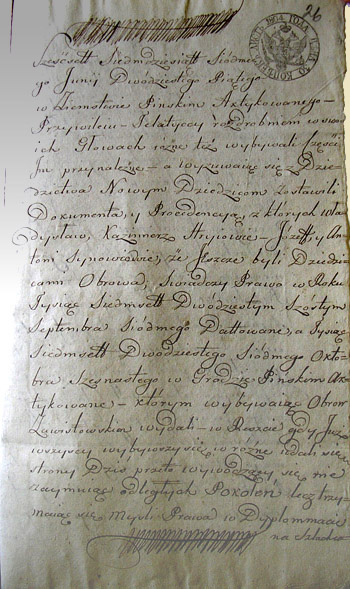 26
Sześćsett Siedmdziesiatt Siódme-
go Junij Dwódziestego Piątego
w Ziemstwie Pinskim Aktykowanego-
Przywileiu - Telatyccy rozdrobniem w swo
ich Głowach rożne też wybywali części
Im przynależne - a wyzuwaiąc się z Dzie-
dzictwa Nowym Dziedzicom zostawili
Dokumenta, y Procedencyą, z których Wła-
dysław, Kazimierz Hryiowie - Józeff y An-
toni Synowcowie, że Jeszcze byli Dziedzi-
cami Obrowa, swiadczy Prawo w Roku
Tysiąc Siedmsett Dwódziestym Szóstym
Septembra Siódmego Dattowane, a Tysiąc
Siedmsett Dwódziestego Siódmego Okto-
bra Szesnastego w Grodzie Pinskim Ak-
tykowane - którym wybywaiąc Obrow
Zawistowskim wydali - w Reszcie gdy Już
wszyscy wybyiorzy się w różne udali się
strony Dziś przeto wywodzący się nie
zaymuiąc odległych Pokoleń lecz trzy-
maiąc się Mysli Prawa w Dyplommacie
na Szlachec